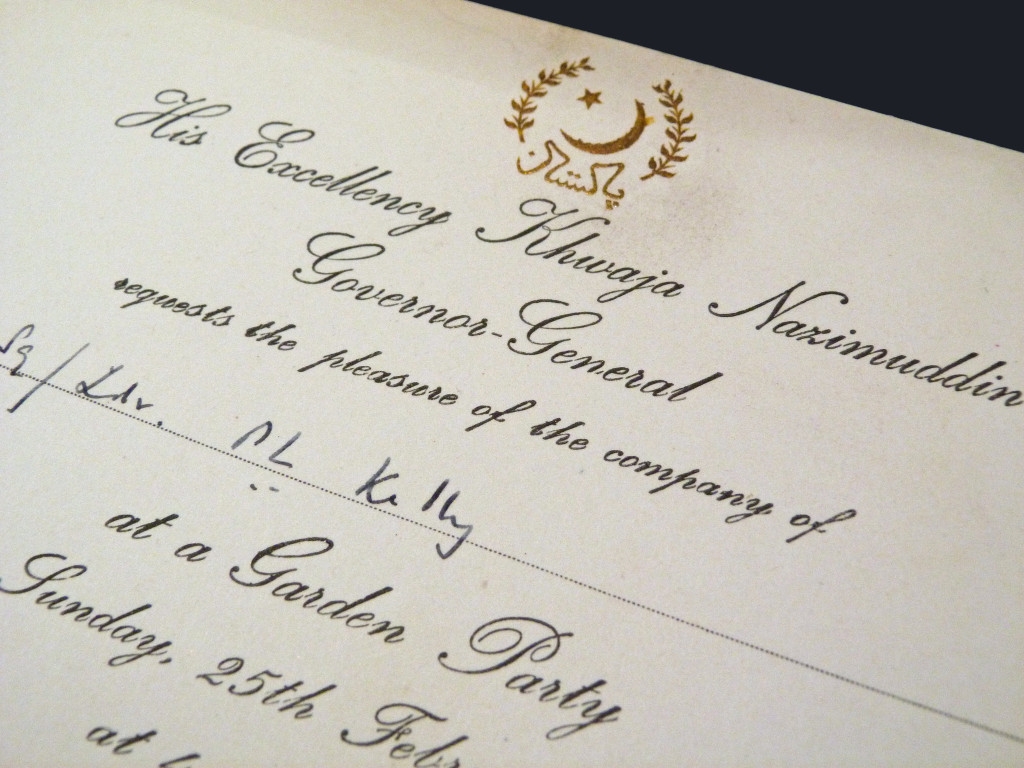 پاکستان
His Excellency Khwaja Nazimuddin
Governor-General
requests the pleasure of the company of
Sq/Ldr. Kelly
at a Garden Party
Sunday, 25th Febr
at